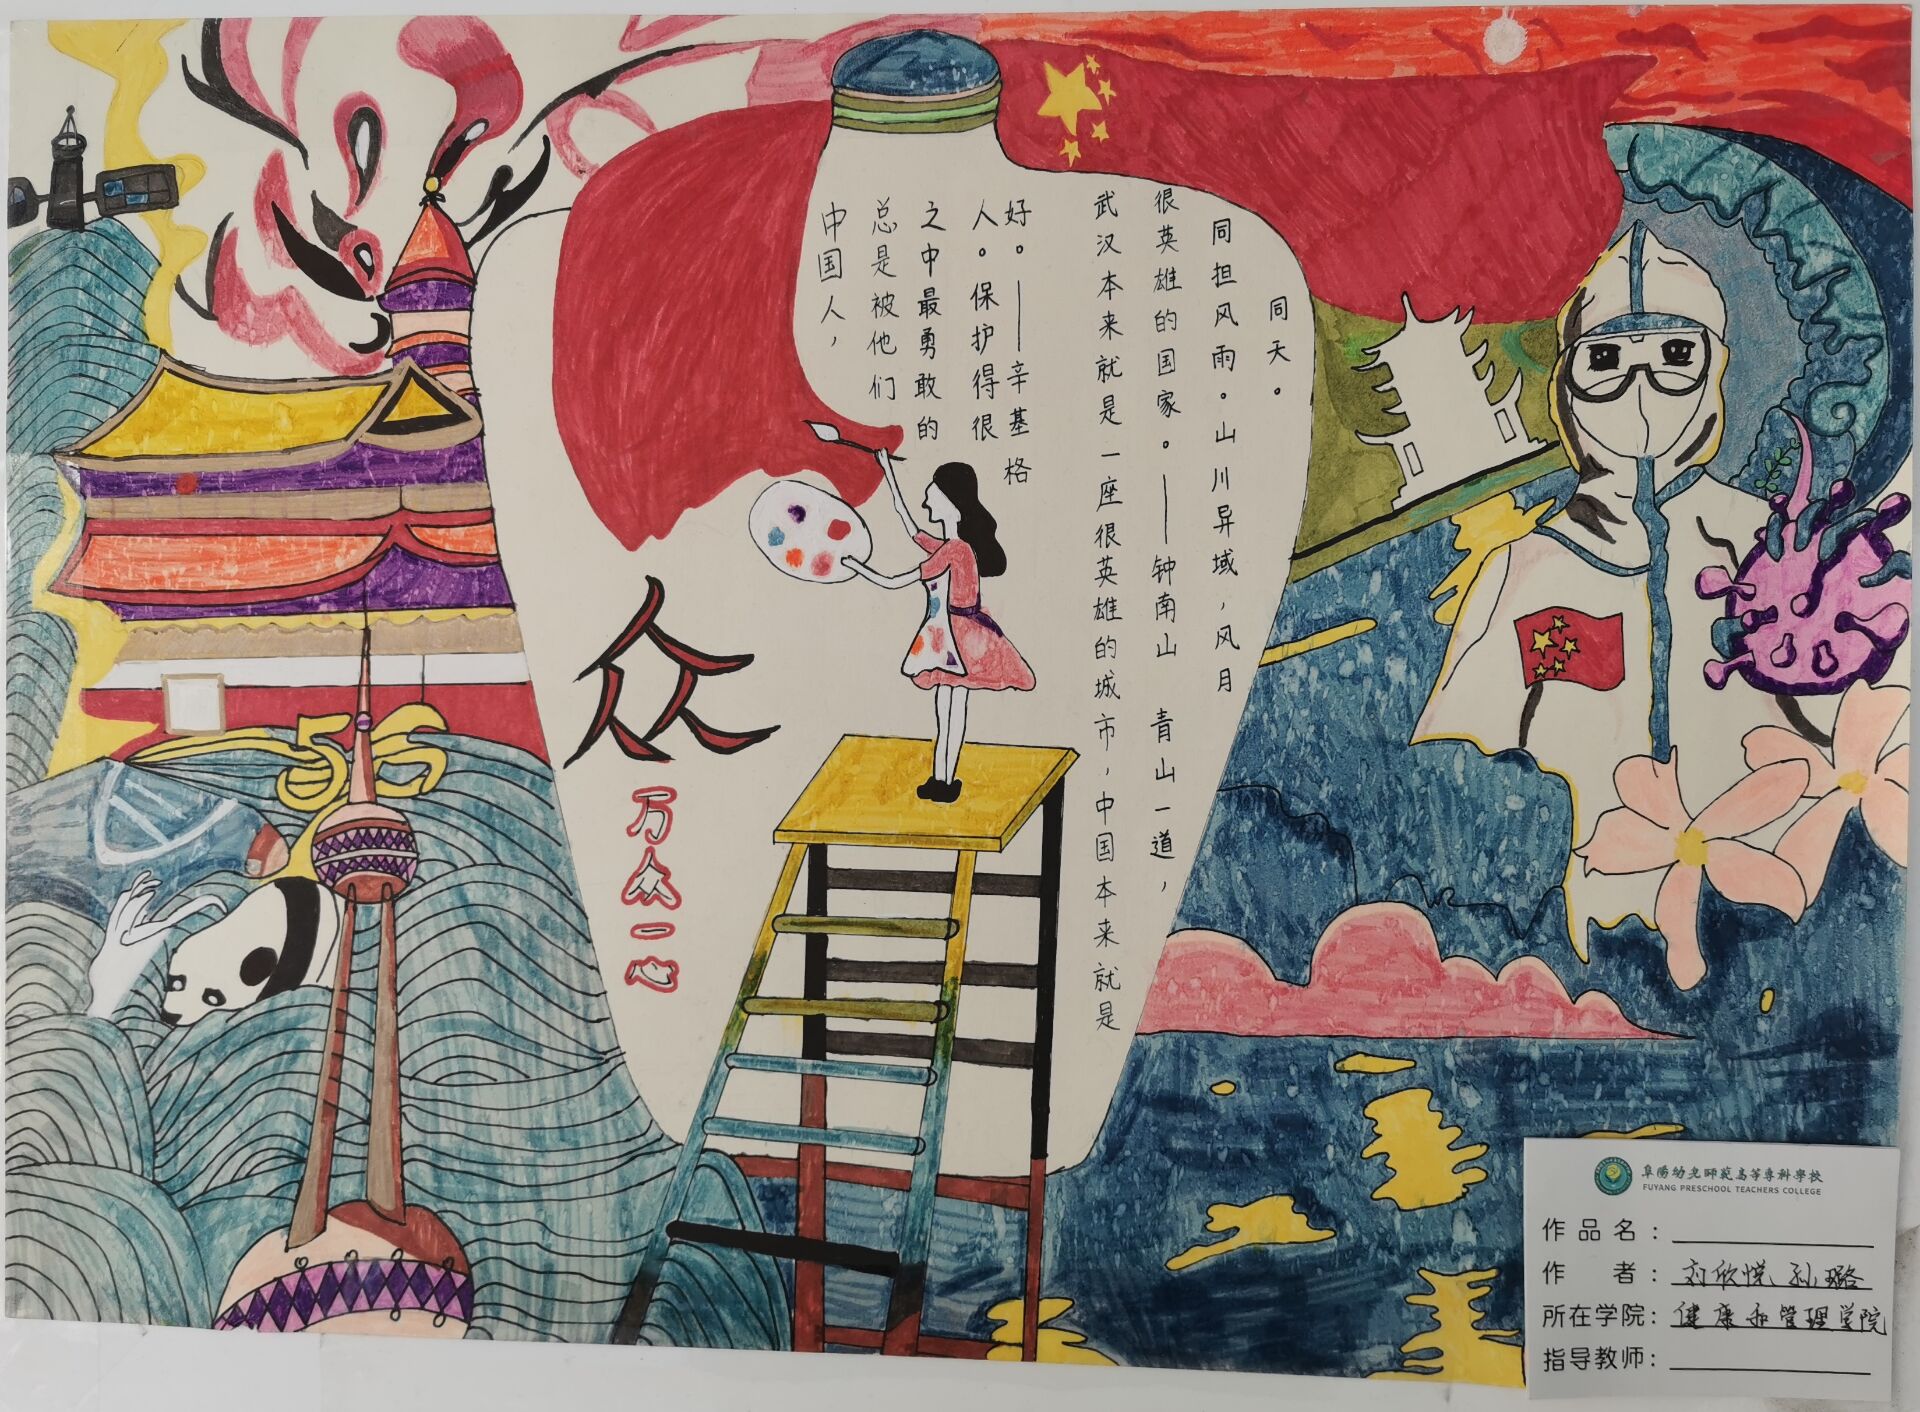 中国人，
总是被他们
之中最勇敢的
人。保护得很
好。——辛基格
武汉本来就是一座很英雄的城市，中国本来就是
很英雄的国家。——钟南山 青山一道，
同担风雨。山川异域，风月
同天。
众
万众一心
56
阜阳幼儿师范高等专科学校
FUYANG PRESCHOOL TEACHERS COLLEGE
作品名：
作 者：刘欣悦 孙璐
所在学院：健康和管理学院
指导教师：